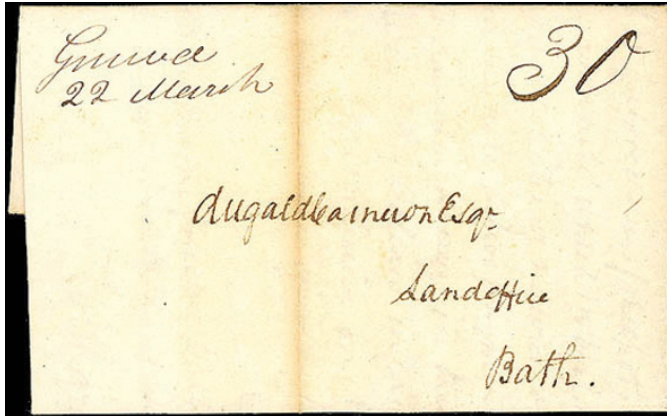 Geneva
22 March
30
Dugald Cameron Esqr
Landoffice
Bath.